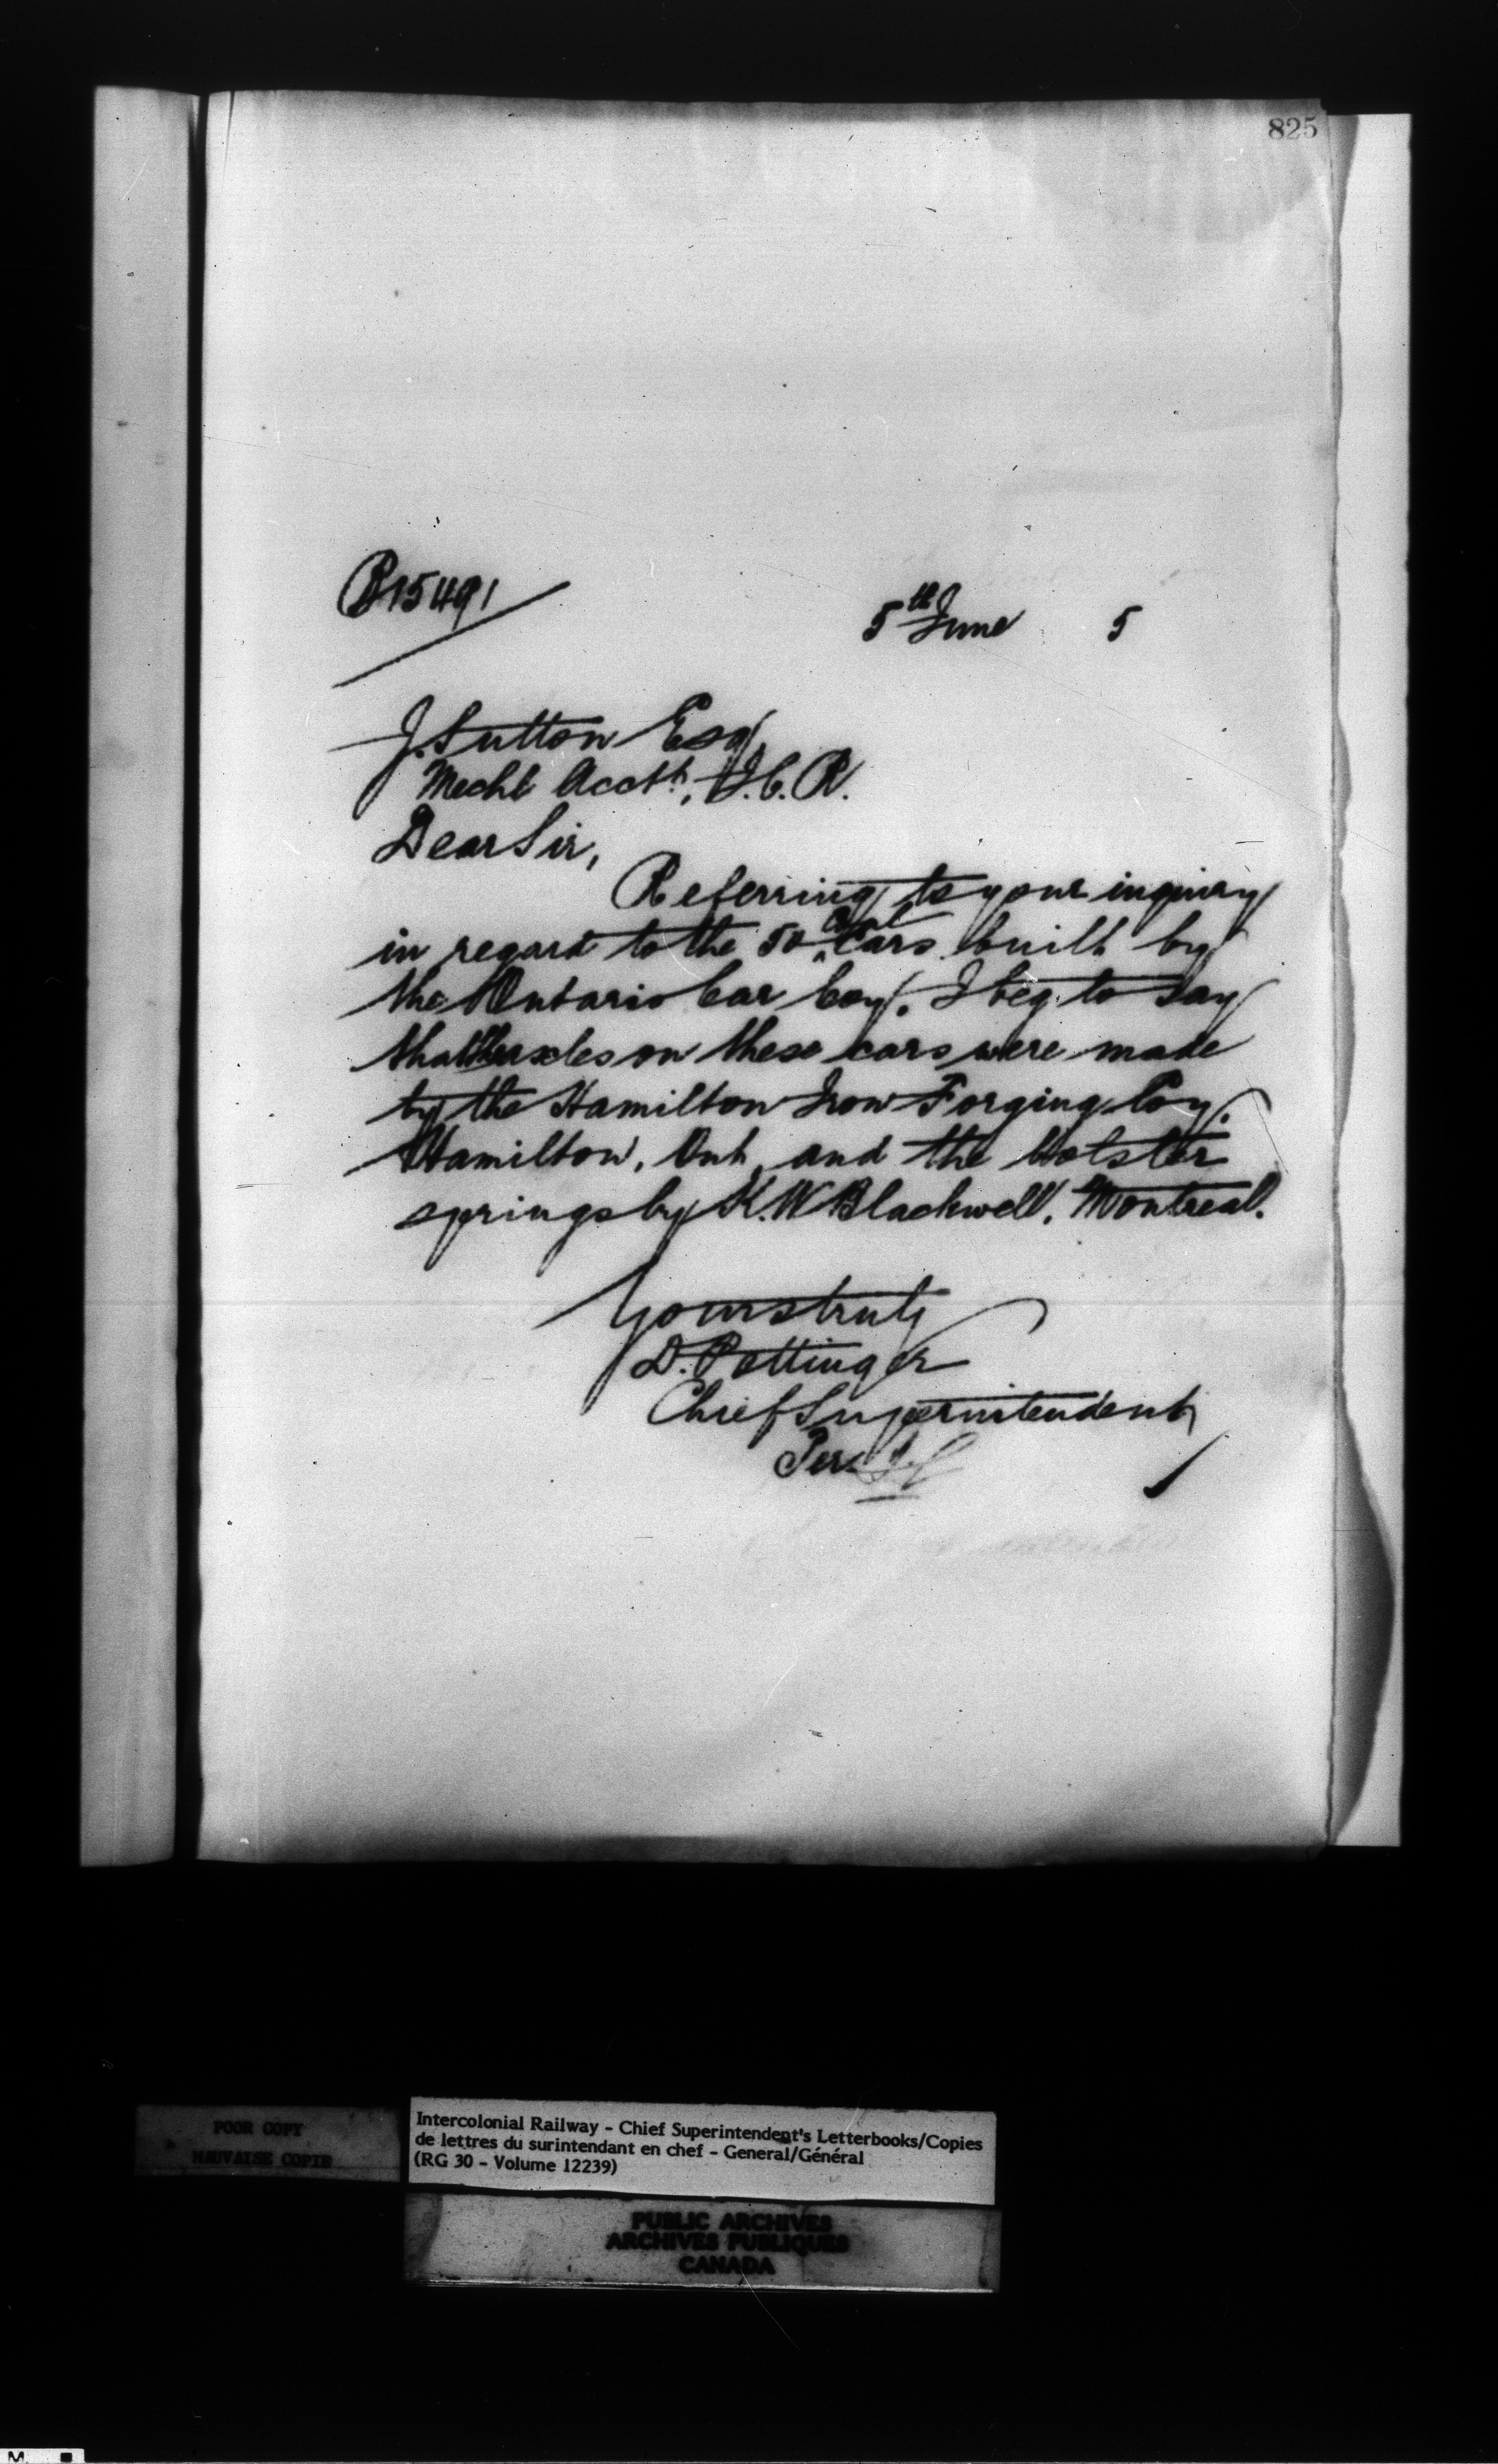 825
R15491
5th June 5
J. Sutton Esq,
Mechl Acctt, I.C.R.
Dear Sir,
Referring to your inquiry
in regard to the 50 Coal Cars built by
the Ontario Car Coy. I beg to say
that the axles on these cars were made
by the Hamilton Iron Forging Coy.
Hamilton, Ont, and the bolster
springs by K.W Blackwell, Montreal.
Yours truly
D. Pottinger
Chief Superintendent
Per.
POOR COPY
MAUVAISE COPIE
Intercolonial Railway - Chief Superintendent's Letterbooks/Copies
de lettres du surintendant en chef - General/Général
(RG 30 - Volume 12239)
PUBLIC ARCHIVES
ARCHIVES PUBLIQUES
CANADA
M.